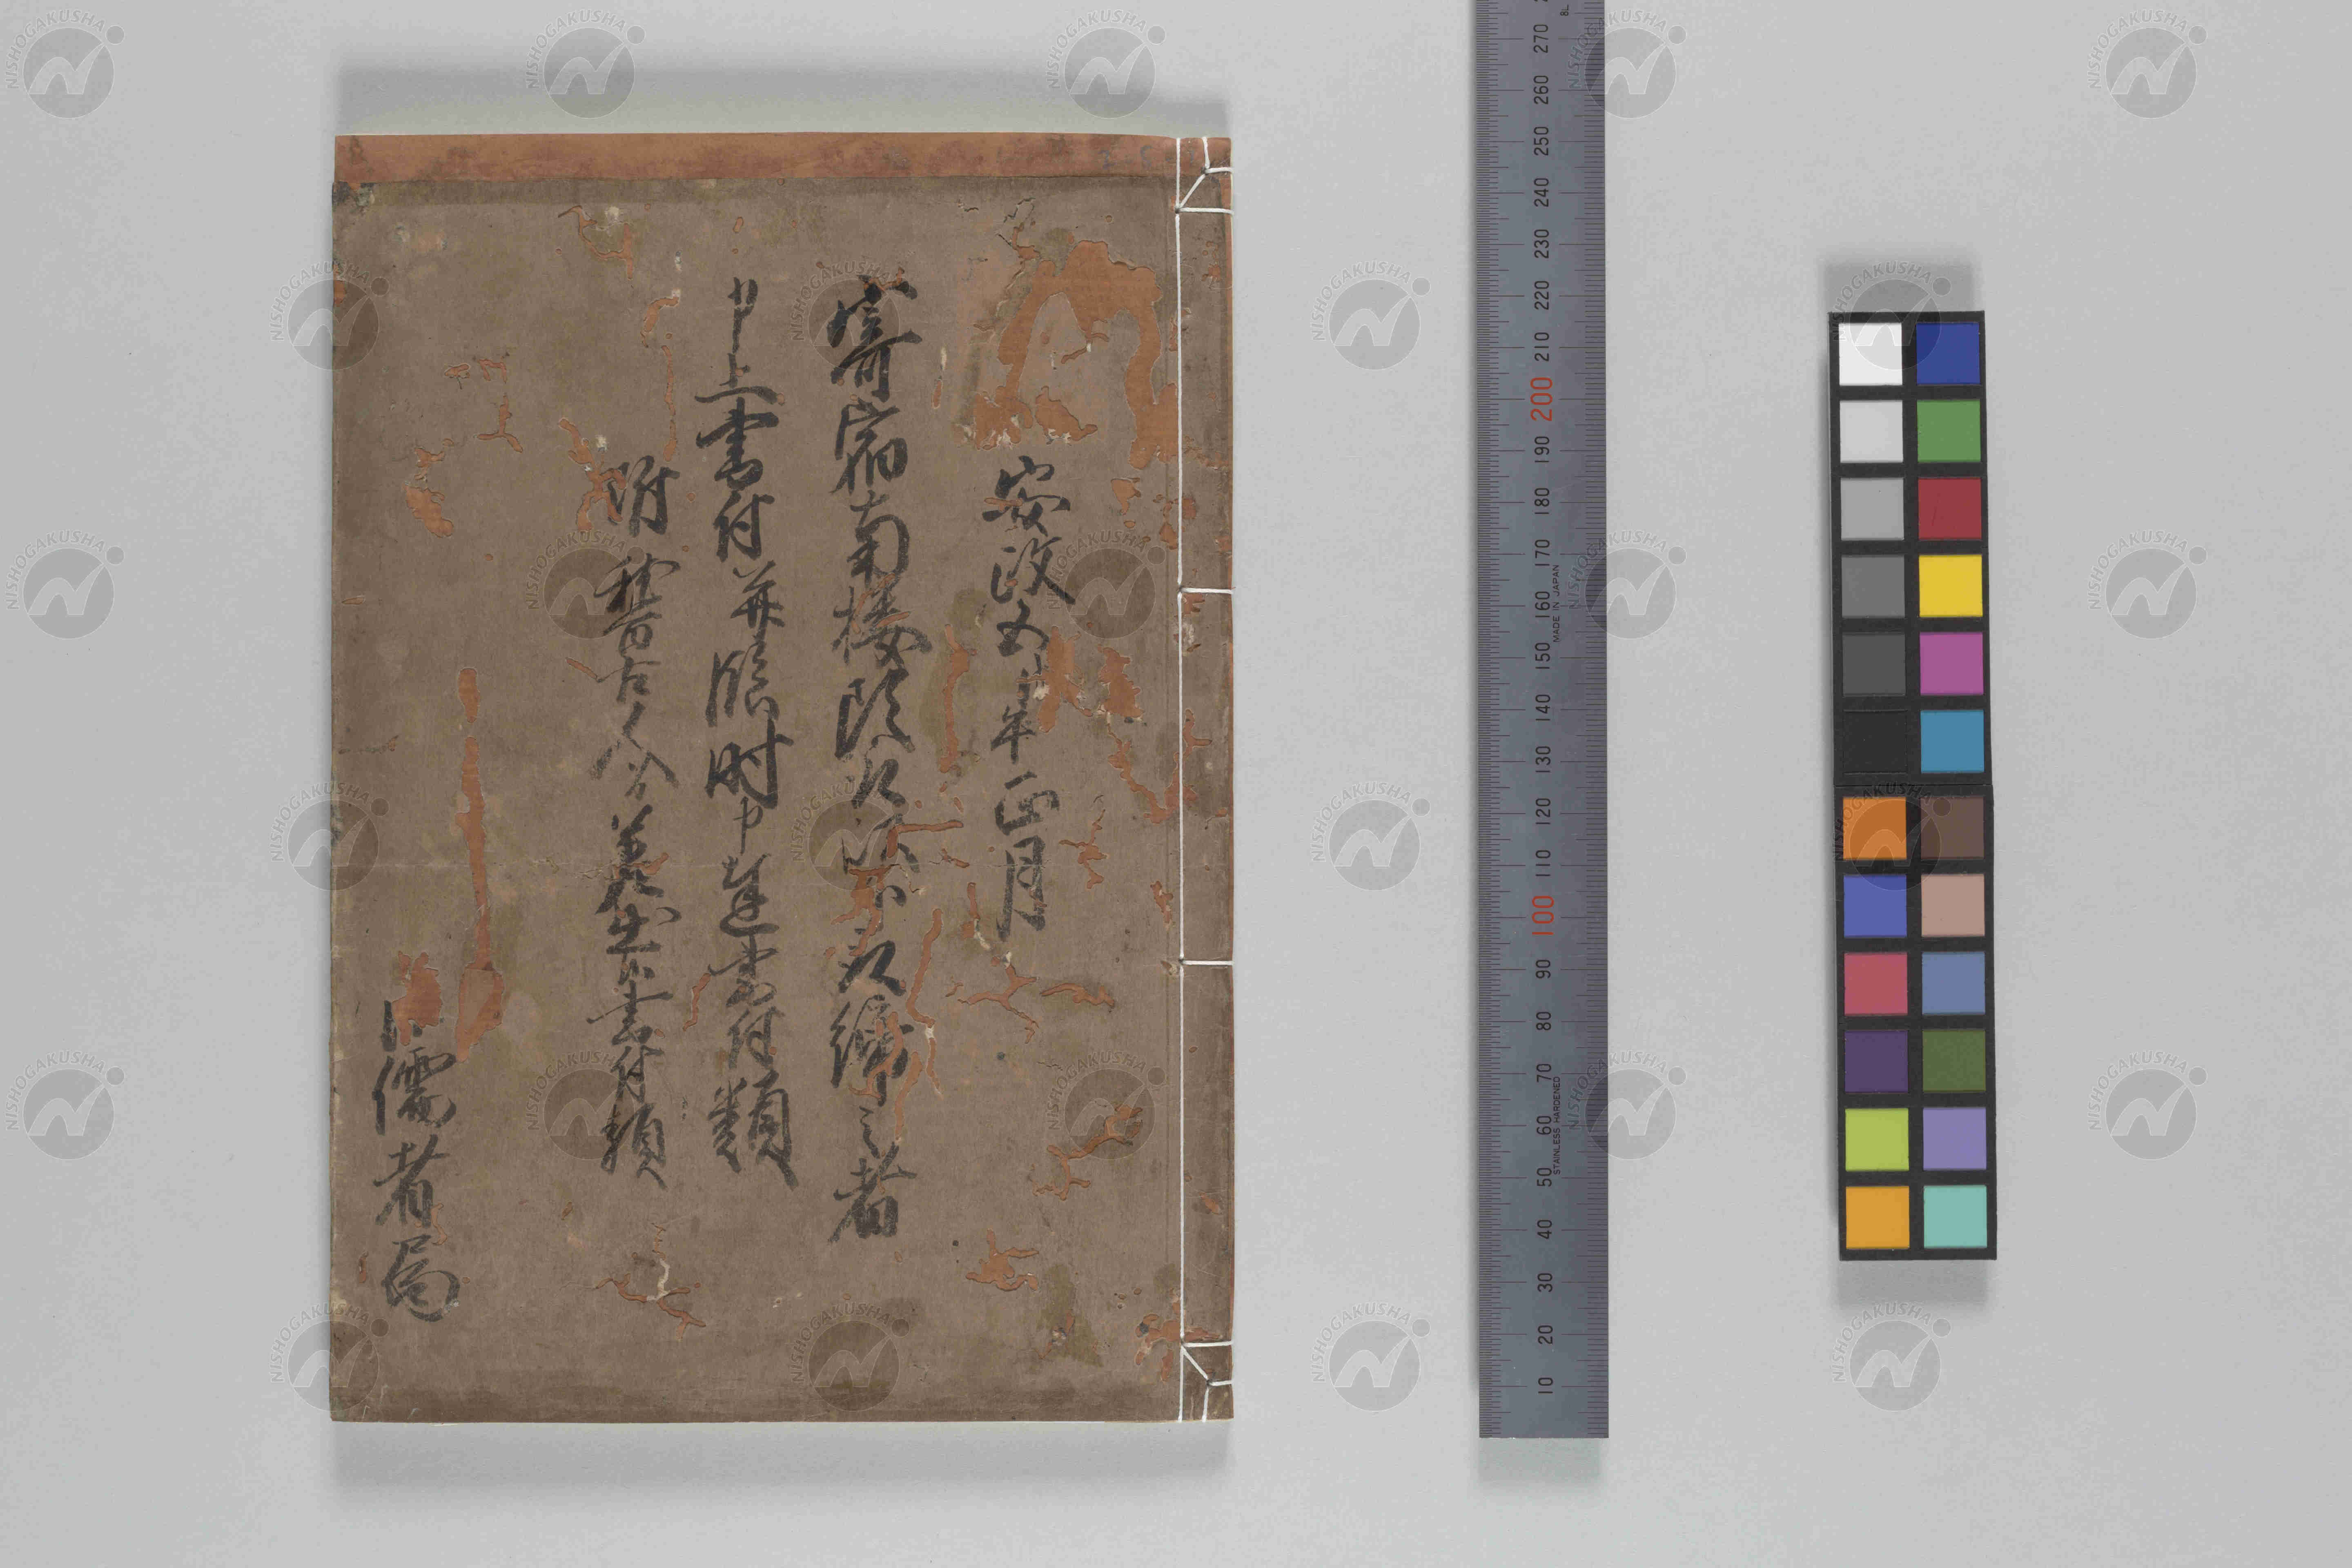 安政五午年正月
寄宿南楼頭取 取締之者
申上書付并臨時申達書付類
附 稽古人 差出候書付類
儒者局
270
260
250
240
230
220
210
200
190
180
170
160
150
140
130
120
110
100
90
80
70
60
50
40
30
20
10
MADE IN JAPAN
STAINLESS HARDENED
NISHOGAKUSHA